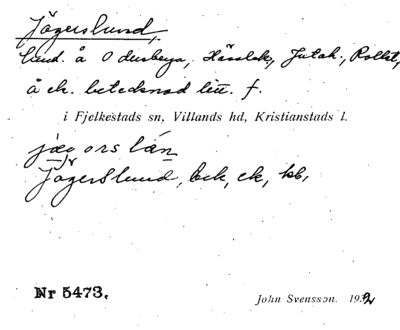 Jägerslund,
lund. å Odersberga, Hässlak, Jutah., Rollst,
å ek. betecknad litt. f.
i Fjelkestads sn, Villands hd, Kristianstads l.
jægors lán
Jägerslund, bek, ek, kb,
Nr 5473. John Svensson. 1932